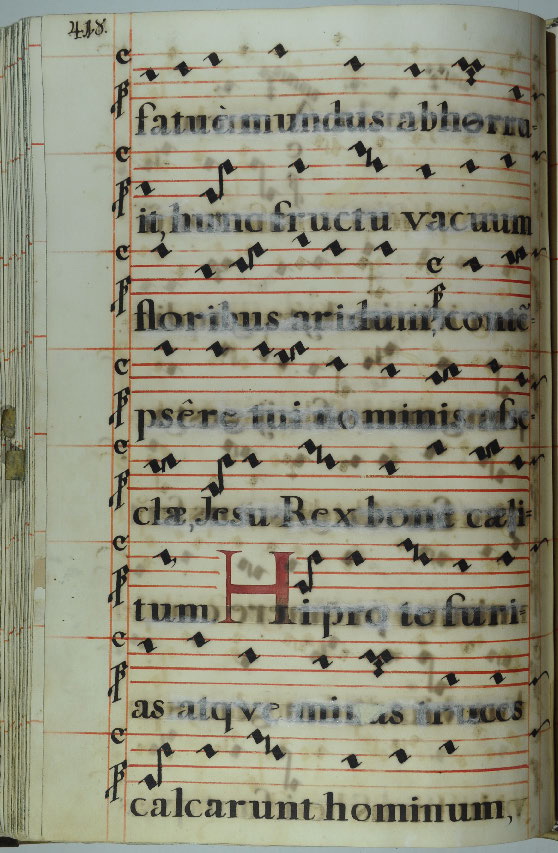 418.
fatuè mundus abhorru-
it, hunc fructu vacuum
floribus aridum, contē-
psêre tui nominis asse-
clæ, Jesu Rex bone cæli-
tum. Hi pro te furi-
as atqve minas truces
calcarunt hominum,